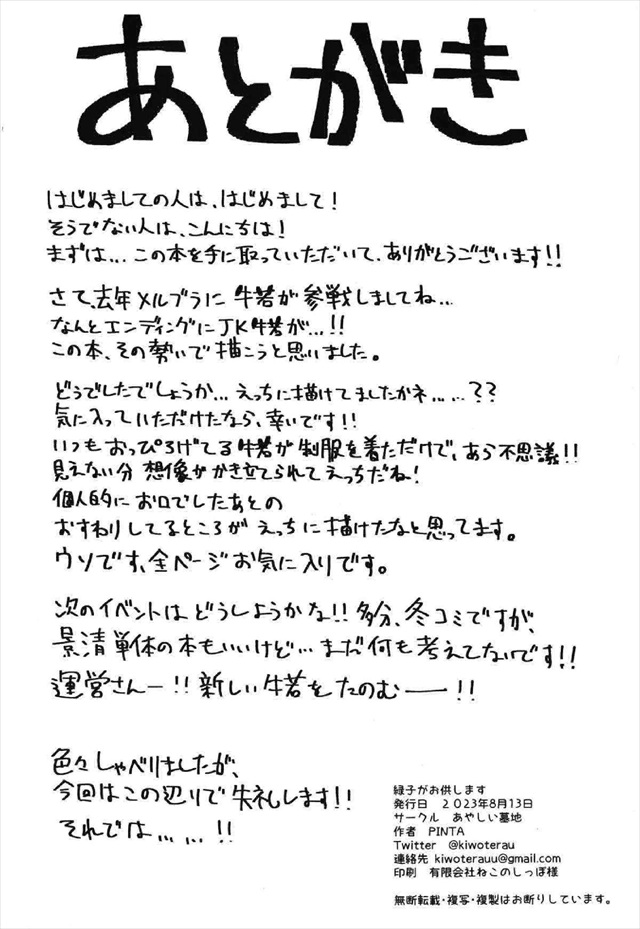 あとがき
はじめましての人は、はじめまして!
そうでない人は、こんにちは!
まずは... この本を手に取っていただいて、ありがとうございます!!
さて、去年メルブラに 牛若が 参戦しましてね...
なんとエンディングにJK牛若が...!!
この本、その勢いで描こうと思いました。
どうでしたでしょうか... えっちに描けてましたかネ......??
気に入っていただけたなら、幸いです!!
いつもおっぴろげてる牛若が 制服を着ただけで、あら不思議!!
見えない分 想像がかき立てられてえっちだね!
個人的にお口でしたあとの
おすわりしてるところが えっちに描けたなと思ってます。
ウソです、全ページお気に入りです。
次のイベントは どうしようかな!! 多分、冬コミですが、
景清単体の本もいいけど... まだ何も考えてないです!!
運営さんー!! 新しい牛若をたのむー!!
色々しゃべりましたが、
今回はこの辺りで失礼します!!
それでは......!!
緑子がお供します
発行日 2023年8月13日
サークル あやしい墓地
作者 PINTA
Twitter @kiwoterau
連絡先 kiwoterauu@gmail.com
印刷 有限会社ねこのしっぽ様
無断転載・複写・複製はお断りしています。